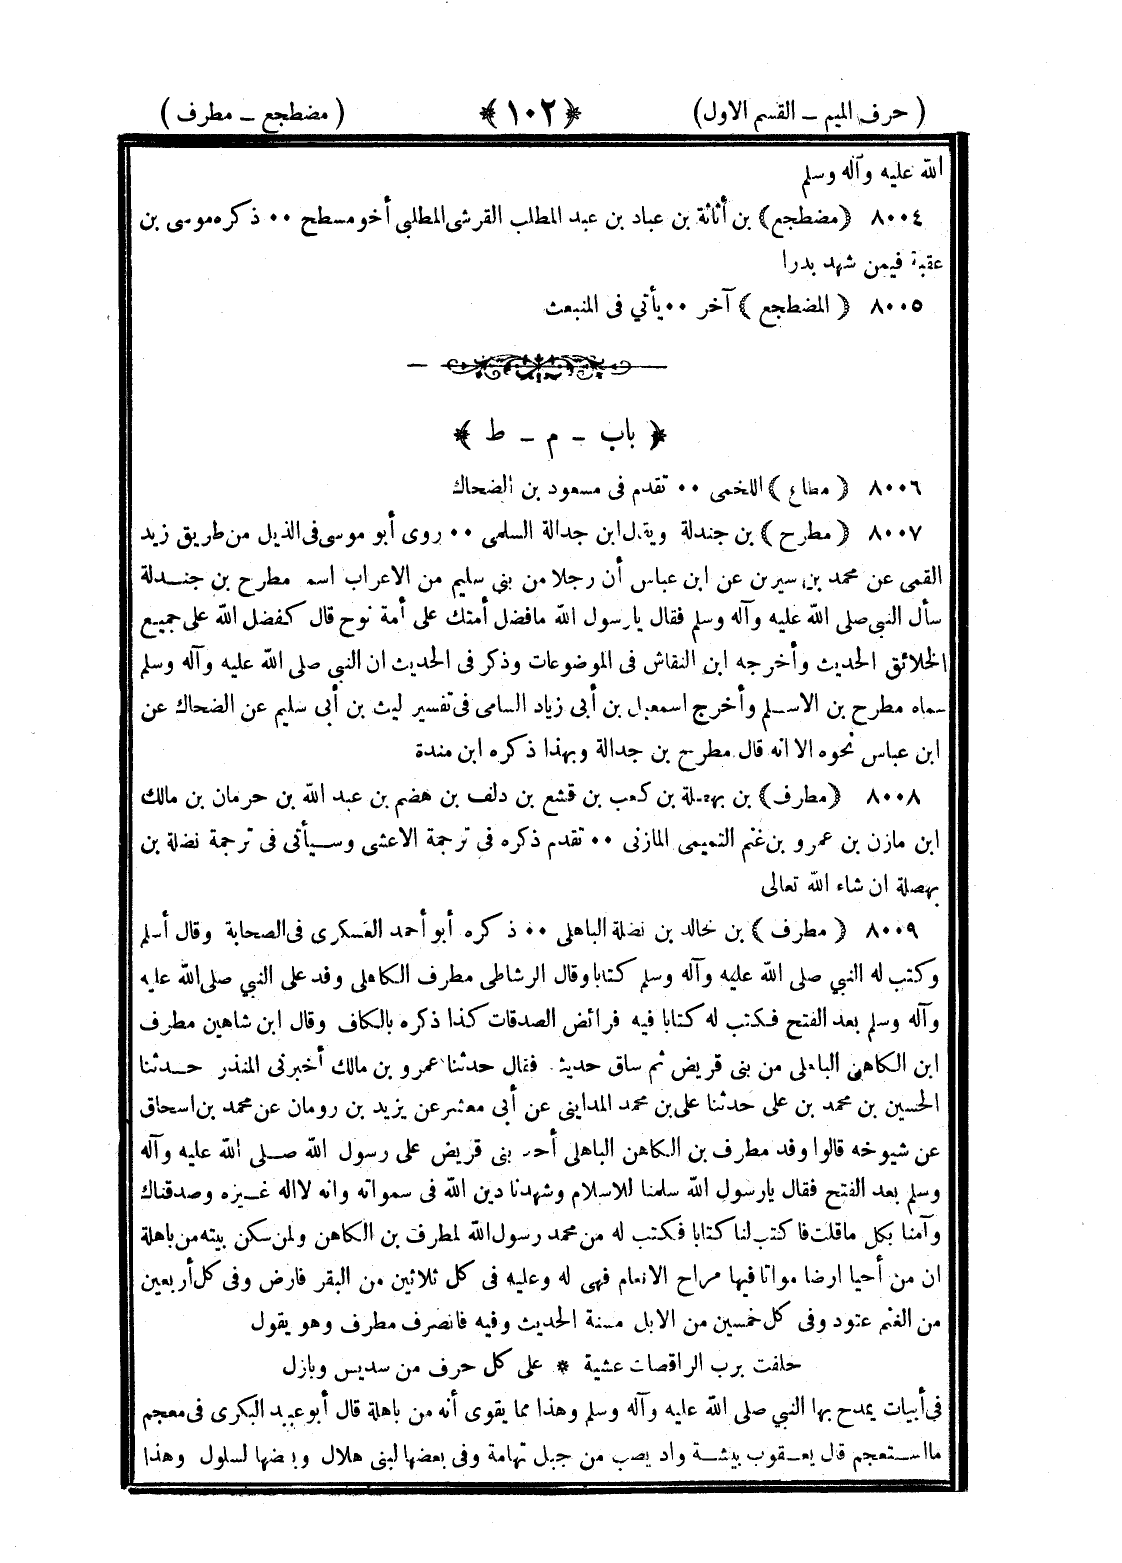 ( حرف الميم ـ القسم الاول) ﴿١٠٢﴾ ( مضطجع ـ مطرف )
الله عليه وآله وسلم
٨٠٠٤ (مضطجع) بن أثاثة بن عباد بن عبد المطلب القرشى المطلبي أخو مسطح ٠٠ ذكره موسى بن
عقبة فيمن شهد بدرا
٨٠٠٥ ( المضطجع ) آخر ٠٠ يأتي فى المنبعث
﴿ باب ـ م ـ ط ﴾
٨٠٠٦ ( مطاع ) اللخمى ٠٠ تقدم فى مسعود بن الضحاك
٨٠٠٧ ( مطرح ) بن جندلة ويقال ابن جدالة السلمى ٠٠ روى أبو موسى فى الذيل من طريق زيد
القمى عن محمد بن سيرين عن ابن عباس أن رجلا من بنى سليم من الاعراب اسمه مطرح بن جندلة
سأل النبي صلى الله عليه وآله وسلم فقال يا رسول الله مافضل أمتك على أمة نوح قال كفضل الله على جميع
الخلائق الحديث وأخرجه ابن النقاش فى الموضوعات وذكر فى الحديث ان النبي صلى الله عليه وآله وسلم
سماه مطرح بن الاسلم وأخرج اسمعيل بن أبى زياد السامى فى تفسير ليث بن أبى سليم عن الضحاك عن
ابن عباس نحوه الا انه قال مطرح بن جدالة وبهذا ذكره ابن مندة
٨٠٠٨ (مطرف) بن بهصلة بن كعب بن قشع بن دلف بن هضم بن عبد الله بن حرمان بن مالك
ابن مازن بن عمرو بن غنم التميمى المازنى ٠٠ تقدم ذكره فى ترجمة الاعشى وسيأتى فى ترجمة نضلة بن
بهصلة ان شاء الله تعالى
٨٠٠٩ ( مطرف ) بن خالد بن نضلة الباهلى ٠٠ ذكره أبو أحمد العسكرى فى الصحابة وقال أسلم
وكتب له النبي صلى الله عليه وآله وسلم كتابا وقال الرشاطى مطرف الكاهلى وفد على النبي صلى الله عليه
وآله وسلم بعد الفتح فكتب له كتابا فيه فرائض الصدقات كذا ذكره بالكاف وقال ابن شاهين مطرف
ابن الكاهن الباهلى من بنى قريض ثم ساق حديثه فقال حدثنا عمرو بن مالك أخبرنى المنذر حدثنا
الحسين بن محمد بن على حدثنا على بن محمد المدايني عن أبي معشر عن يزيد بن رومان عن محمد بن اسحاق
عن شيوخه قالوا وفد مطرف بن الكاهن الباهلى أحد بنى قريض على رسول الله صلى الله عليه وآله
وسلم بعد الفتح فقال يارسول الله سلمنا للاسلام وشهدنا دين الله فى سمواته وانه لااله غيره وصدقناك
وآمنا بكل ماقلت فاكتب لنا كتابا فكتب له من محمد رسول الله لمطرف بن الكاهن ولمن سكن بيته من باهلة
ان من أحيا ارضا مواتا فيها مراح الانعام فهى له وعليه فى كل ثلاثين من البقر فارض وفى كل أربعين
من الغنم عتود وفى كل خمسين من الابل مسنة الحديث وفيه فانصرف مطرف وهو يقول
حلفت برب الراقصات عشية * على كل حرف من سديس وبازل
فى أبيات يمدح بها النبي صلى الله عليه وآله وسلم وهذا مما يقوى أنه من باهلة قال أبو عبيد البكرى فى معجم
مااستعجم قال يعقوب بيشة واد يصب من جبل تهامة وفى بعضها لبنى هلال وبعضها لسلول وهذا